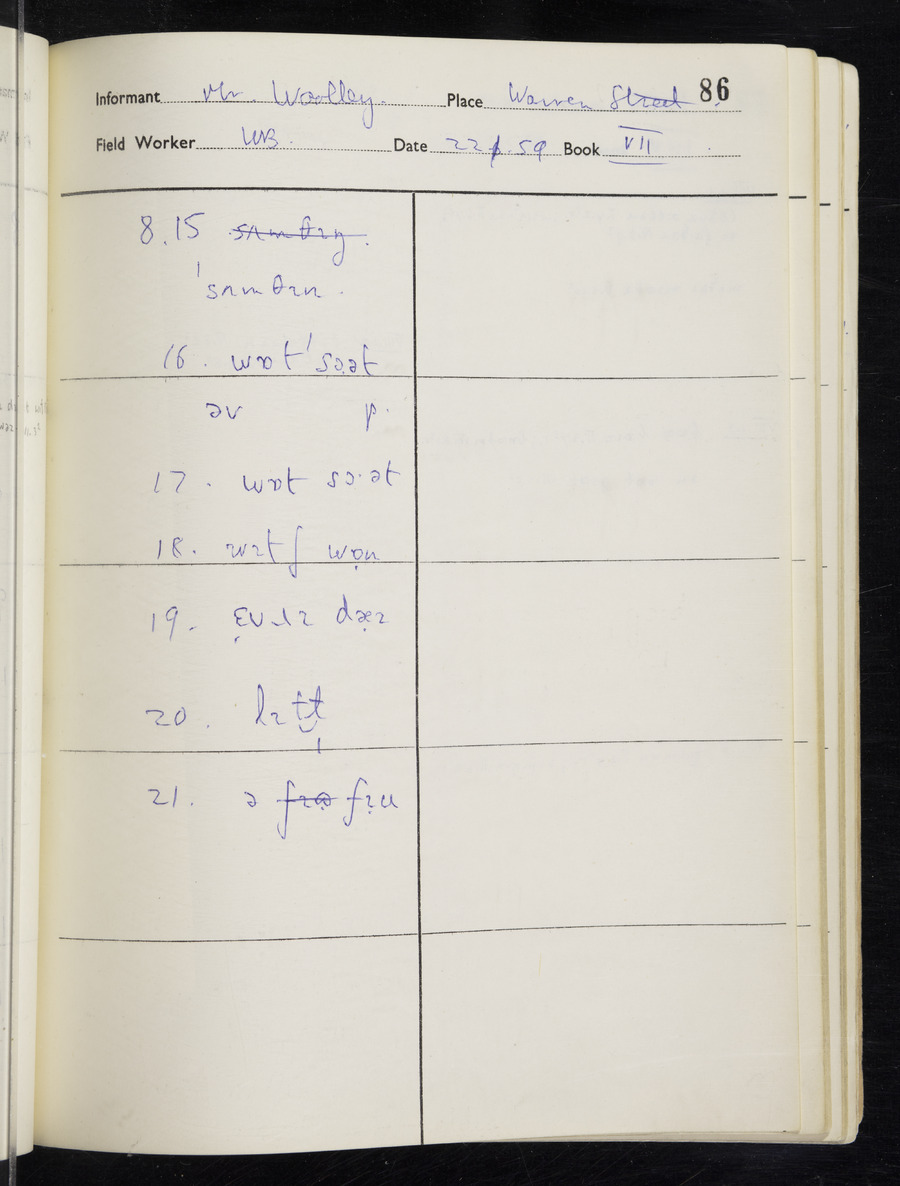 Informant Mr. Woolley. Place Warren Street 86
Field Worker WB. Date 22 1. 59 Book VII
8.15 sʌmθɪŋ.
ˈsʌmθɪn.
16. wɒt ˈsɔ̣ət
əv
17. wɒt sɔ·ət
18. wɪtʃ wọn
19. ɛ̣vɹɪ dæ̣ɪ
20. lɪtɫ̩
21. ə fɪ̣u